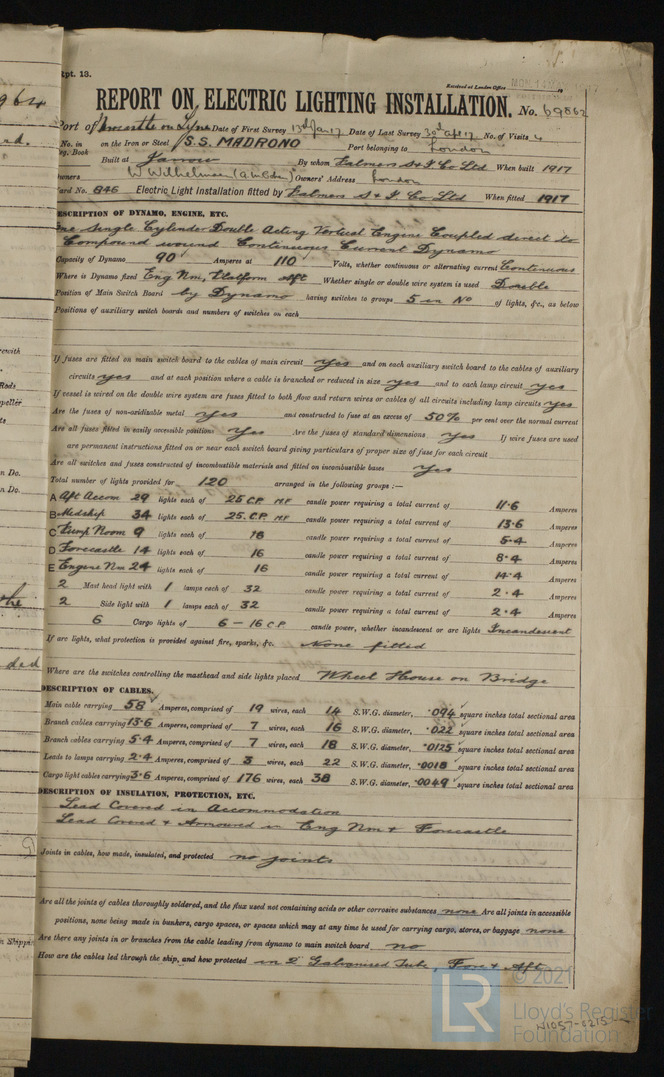 Rpt. 13.
Received at London Office
REPORT ON ELECTRIC LIGHTING INSTALLATION. No. 69862
Port of Newcastle on Tyne Date of First Survey 13th Jan 17 Date of Last Survey 30th Apl 17 No. of Visits 4
No. in Reg. Book on the Iron or Steel S.S. MADRONO Port belonging to London
Built at Jarrow By whom Palmers S & I Co Ltd When built 1917
Owners W Wilhelmsen Owners' Address London
Yard No. 846 Electric Light Installation fitted by Palmers S & I Co Ltd When fitted 1917
DESCRIPTION OF DYNAMO, ENGINE, ETC.
One Single Cylinder Double Acting Vertical Engine Coupled direct to
Compound wound Continuous Current Dynamo
Capacity of Dynamo 90 Amperes at 110 Volts, whether continuous or alternating current Continuous
Where is Dynamo fixed Eng Rm, Platform Aft Whether single or double wire system is used Double
Position of Main Switch Board by Dynamo having switches to groups 5 in No of lights, &c., as below
Positions of auxiliary switch boards and numbers of switches on each
If fuses are fitted on main switch board to the cables of main circuit yes and on each auxiliary switch board to the cables of auxiliary
circuits yes and at each position where a cable is branched or reduced in size yes and to each lamp circuit yes
If vessel is wired on the double wire system are fuses fitted to both flow and return wires or cables of all circuits including lamp circuits yes
Are the fuses of non-oxidizable metal yes and constructed to fuse at an excess of 50% per cent over the normal current
Are all fuses fitted in easily accessible positions yes Are the fuses of standard dimensions yes If wire fuses are used
are permanent instructions fitted on or near each switch board giving particulars of proper size of fuse for each circuit
Are all switches and fuses constructed of incombustible materials and fitted on incombustible bases Yes
Total number of lights provided for 120 arranged in the following groups :—
A Aft Accom 29 lights each of 25 C.P. M.F. candle power requiring a total current of 11.6 Amperes
B Midship 34 lights each of 25 C.P. M.F. candle power requiring a total current of 13.6 Amperes
C Pump Room 9 lights each of 16 candle power requiring a total current of 5.4 Amperes
D Forecastle 14 lights each of 16 candle power requiring a total current of 8.4 Amperes
E Engine Rm 24 lights each of 16 candle power requiring a total current of 14.4 Amperes
2 Mast head light with 1 lamps each of 32 candle power requiring a total current of 2.4 Amperes
2 Side light with 1 lamps each of 32 candle power requiring a total current of 2.4 Amperes
6 Cargo lights of 6 - 16 C.P. candle power, whether incandescent or arc lights Incandescent
If arc lights, what protection is provided against fire, sparks, &c. None fitted
Where are the switches controlling the masthead and side lights placed Wheel House on Bridge
DESCRIPTION OF CABLES.
Main cable carrying 58 Amperes, comprised of 19 wires, each 14 S.W.G. diameter, .094 square inches total sectional area
Branch cables carrying 13.6 Amperes, comprised of 7 wires, each 16 S.W.G. diameter, .022 square inches total sectional area
Branch cables carrying 5.4 Amperes, comprised of 7 wires, each 18 S.W.G. diameter, .0125 square inches total sectional area
Leads to lamps carrying 2.4 Amperes, comprised of 3 wires, each 22 S.W.G. diameter, .0018 square inches total sectional area
Cargo light cables carrying 3.6 Amperes, comprised of 176 wires, each 38 S.W.G. diameter, .0049 square inches total sectional area
DESCRIPTION OF INSULATION, PROTECTION, ETC.
Lead Covered in Accommodation
Lead Covered & Armoured in Eng Rm & Forecastle
Joints in cables, how made, insulated, and protected no joints
Are all the joints of cables thoroughly soldered, and the flux used not containing acids or other corrosive substances none Are all joints in accessible
positions, none being made in bunkers, cargo spaces, or spaces which may at any time be used for carrying cargo, stores, or baggage none
Are there any joints in or branches from the cable leading from dynamo to main switch board no
How are the cables led through the ship, and how protected in 2" Galvanised Tube, Fore & Aft
© 2021
LR
Lloyd's Register
Foundation
W1057-0215